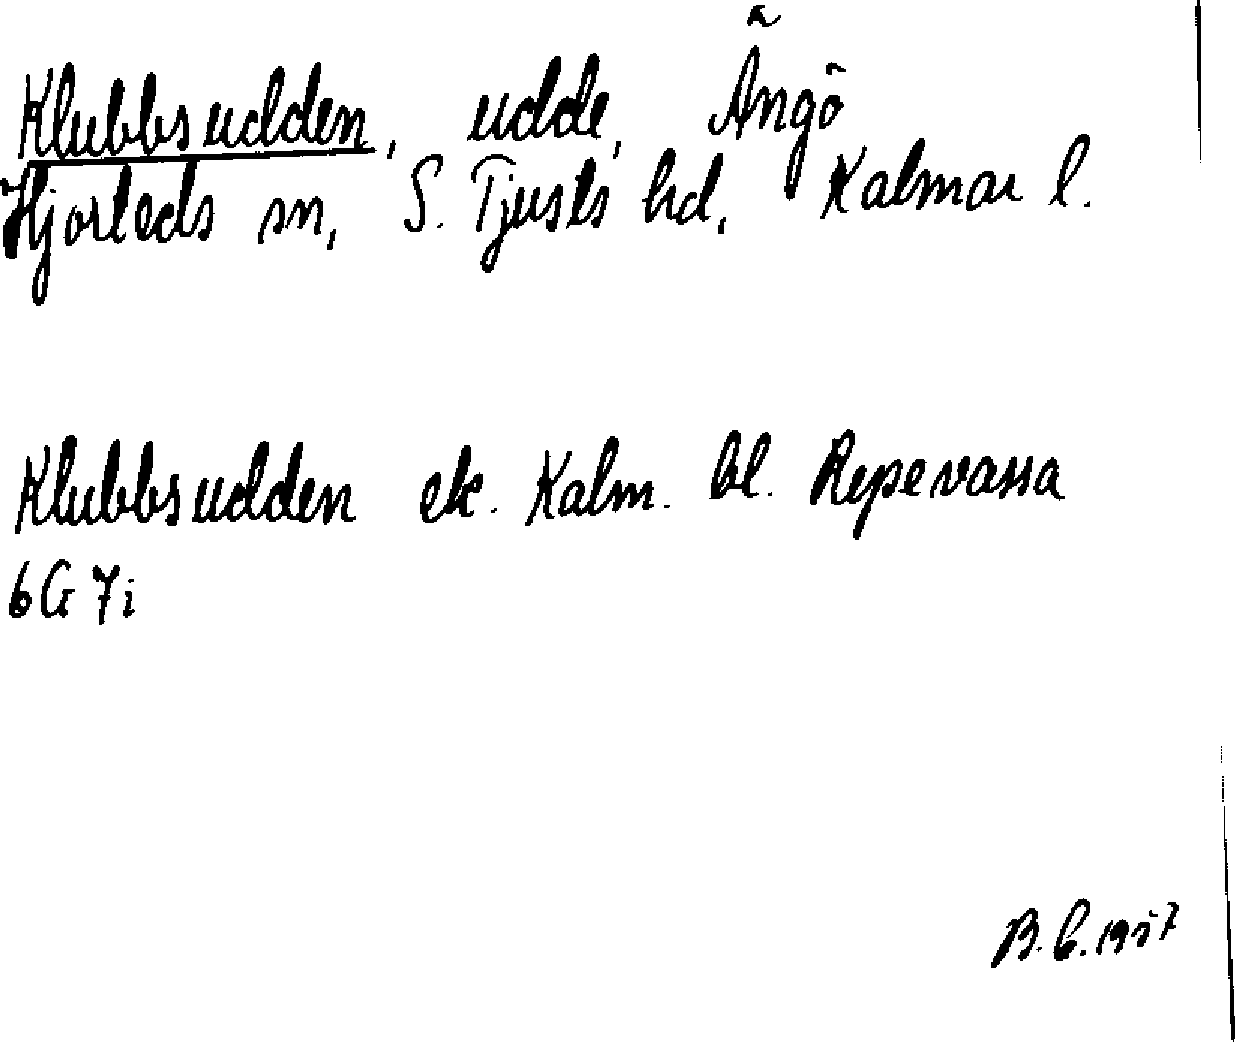 Klubbsudden, udde, Ängö
Hjorteds sn, S. Tjusts hd, Kalmar l.
Klubbsudden ek. Kalm. bl. Repevassa
6G 7i
B.G.1957